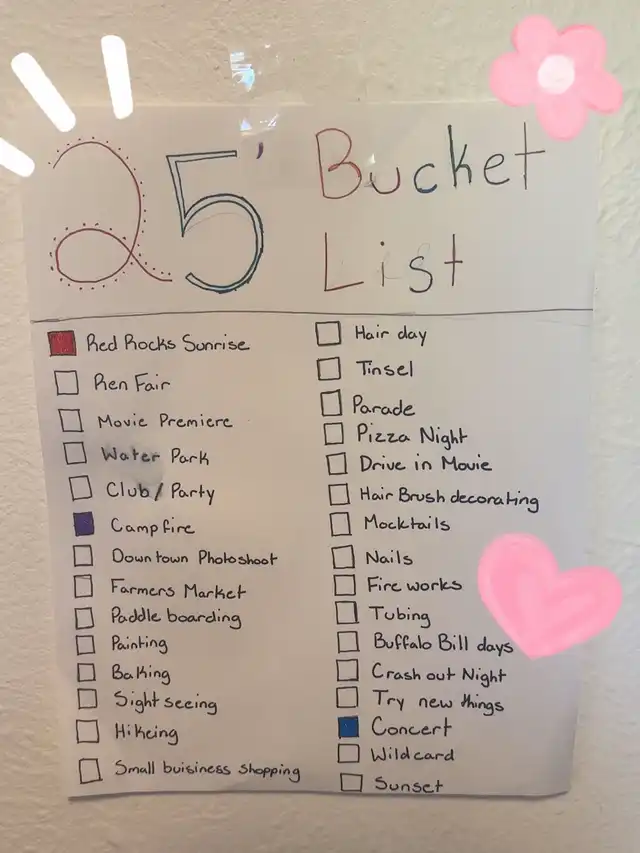 25' Bucket
List
Red Rocks Sunrise
Ren Fair
Movie Premiere
Water Park
Club/Party
Campfire
Downtown Photoshoot
Farmers Market
Paddle boarding
Painting
Baking
Sight seeing
Hikeing
Small buisiness shopping
Hair day
Tinsel
Parade
Pizza Night
Drive in Movie
Hair Brush decorating
Mocktails
Nails
Fire works
Tubing
Buffalo Bill days
Crash out Night
Try new things
Concert
Wildcard
Sunset